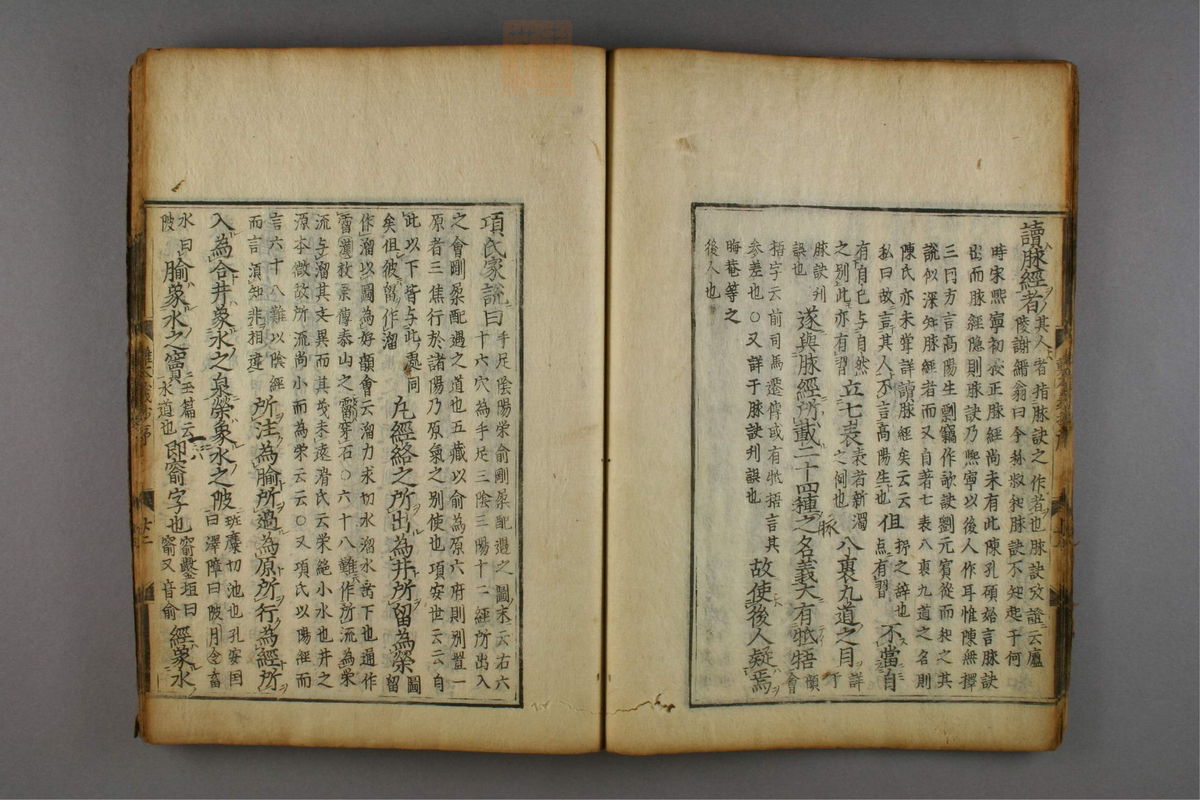 讀脉經者其人者指脉訣之作者也脉訣攷證云廬
陵謝縉翁曰今称叔和脉訣不知起于何
時宋熙寧初挍正脉經尚未有此陳孔碩始言脉訣
出而脉經隱則脉訣乃熙寧以後人作耳惟陳無擇
三因方言高陽生剽竊作歌訣劉元賓從而和之其
說似深知脉經者而又自著七表八裏九道之名則
陳氏亦未甞詳讀脉經矣云云
私曰故言其人不言高陽生也但点有習拶之辞也不當自
有自己与自然之別此亦有習立七表表者新濁之詞也八裏九道之目詳于
脉訣刋誤也遂與脉經所載二十四種之名義大有牴牾韻會
牾字云前司馬遷傳或有牴捂言其
参差也○又詳于脉訣刋誤也故使後人疑焉
晦菴等之
後人也
項氏家說曰手足陰陽荣俞剛柔配遇之圖末云右六
十六穴為手足三陰三陽十二經所出入
之會剛柔配遇之道也五藏以俞為原六府則別置一
原者三焦行於諸陽乃原氣之別使也項安世云云自
此以下皆与此處同
矣但彼留作溜凡經絡之所出為井所留為榮圖留
作溜以圖為好韻會云溜力求切水溜水畱下也通作
霤漢枚乘傳泰山之霤穿石○六十八難作所流為榮
流与溜其文異而其義未遠滑氏云荣絶小水也井之
源本微故所流尚小而為荣云云○又項氏以陽經而
言六十八難以陰經
而言須知非相違所注為腧所過為原所行為經所
入為合井象水之泉榮象水之陂班麋切池也孔安国
曰澤障曰陂月令畜
水曰陂腧象水之竇玉篇云水道也即窬字也窬鑿垣曰窬又音俞經象水